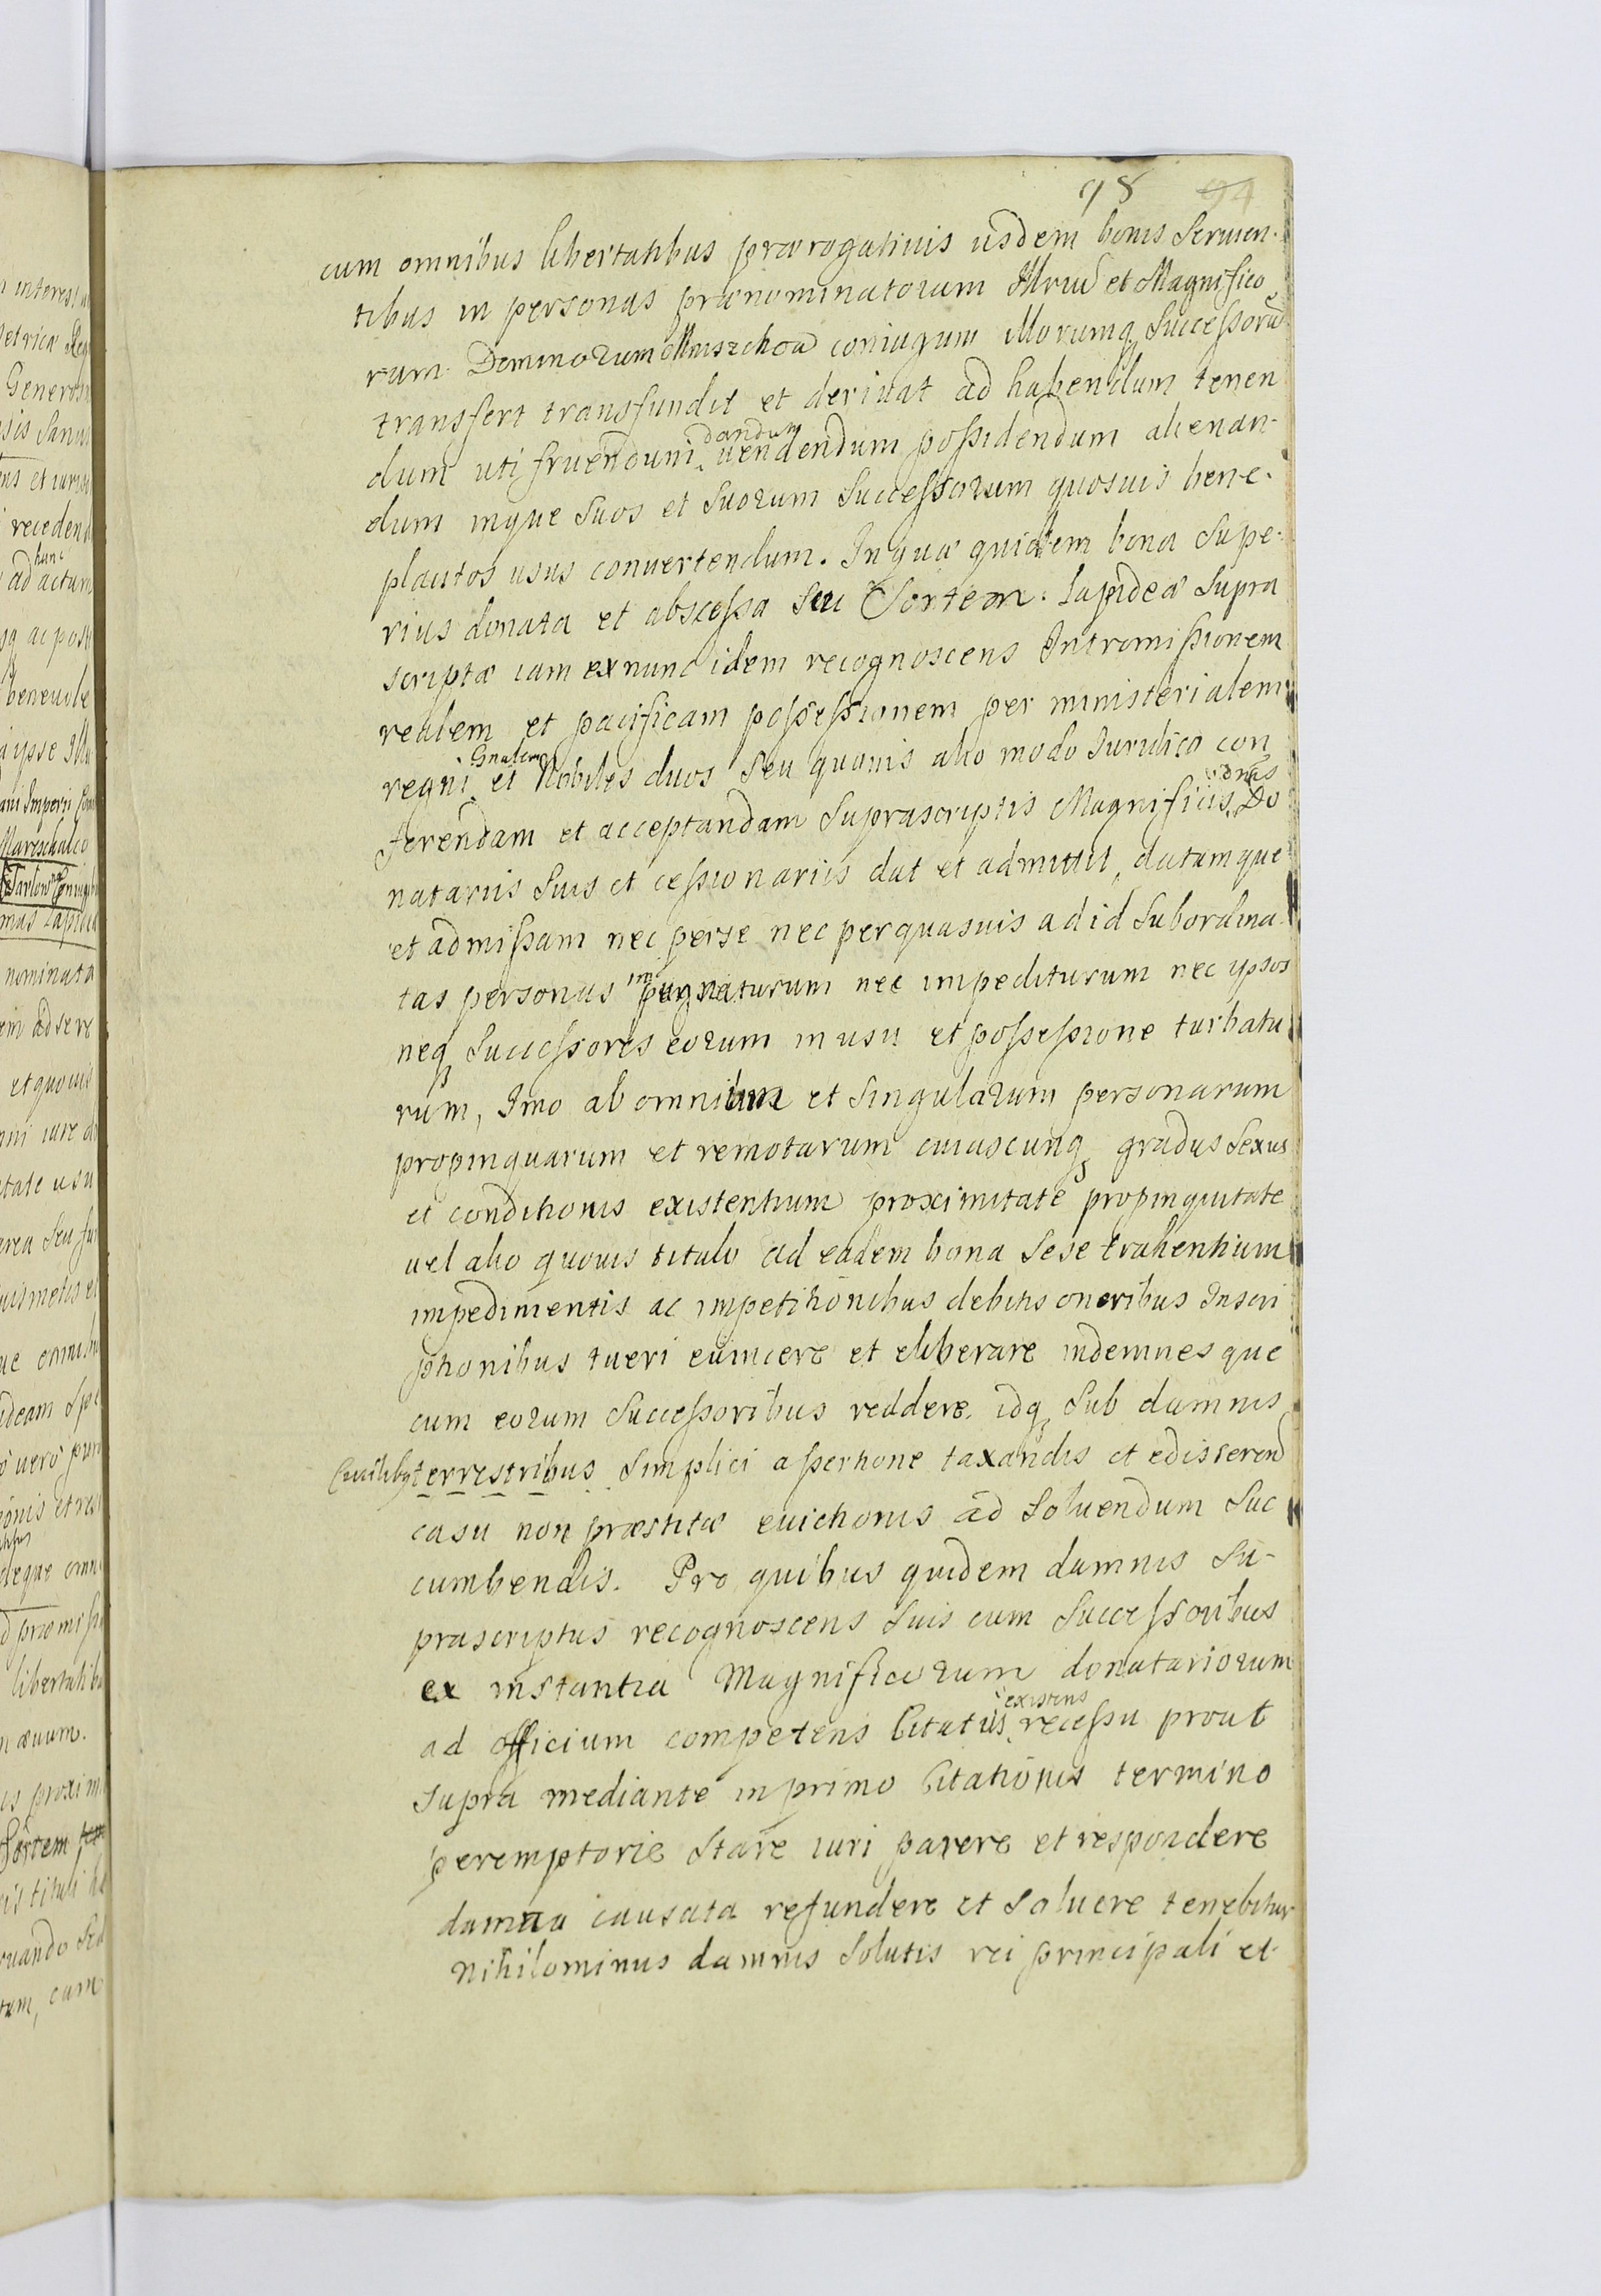 98 94
cum omnibus libertatibus prærogatiuis iisdem bonis Seruien-
tibus in personas prænominatorum Illriũ et Magnifico
rum Dominorum Mniszchoũ coniugum illorumq Successorũ
transfert transfundit et deriuat ad habendum tenen
dum uti fruendum dandum uendendum possidendum alienan-
dum inque Suos et Suorum Successorum quosuis bene-
placitos usus conuertendum. In quæ quidem bona Supe-
rius donata et abscessa Seu Sortem Lapideæ Supra
scriptæ iam ex nunc idem recognoscens Intromissionem
realem et pacificam possessionem per ministerialem
regni Gnalem et Nobiles duos Seu quouis alio modo Iuridico con
ferendam et acceptandam Suprascriptis Magnificis Dnis Do
natariis Suis et cessionariis dat et admittit, datamque
et admissam nec per se nec per quasuis ad id Subordina
tas personas impugnaturum nec impediturum nec ypsos
neq Successores eorum in usu et possessione turbatu
rum, Imo ab omnium et Singularum personarum
propinquarum et remotarum cuiuscunq gradus Sexus
et conditionis existentium proximitate propinquitate
uel alio quouis titulo ad eadem bona Sese trahentium
impedimentis ac impetitionibus debitis oneribus Inscri
ptionibus tueri euincere et eliberare indemnesque
cum eorum Successoribus reddere idq Sub damnis
Ciuilibq terrestribus Simplici assertione taxandis et edisserend
casu non præstitæ euictionis ad Soluendum Suc
cumbendis. Pro quibus quidem damnis Su-
prascriptus recognoscens Suis cum Successoribus
ex instantia Magnificorum donatariorum
ad officium competens Citatus existens recessu prout
Supra mediante in primo Citationis termino
peremptorie Stare iuri parere et respondere
damna causata refundere et Soluere tenebitur
Nihilominus damnis Solutis rei principali et